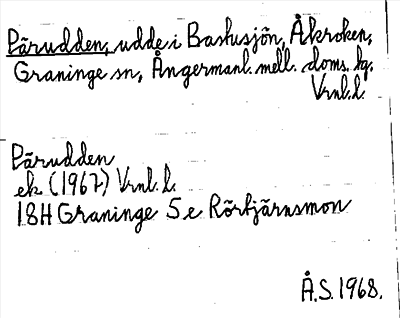 Pärudden, udde i Bastusjön, Åkroken,
Graninge sn, Ångermanl. mell. doms. hg.
Vrnl. l.
Pärudden
ek (1967) Vrnl. l.
18H Graninge 5e Rörtjärnsmon
Å.S. 1968.